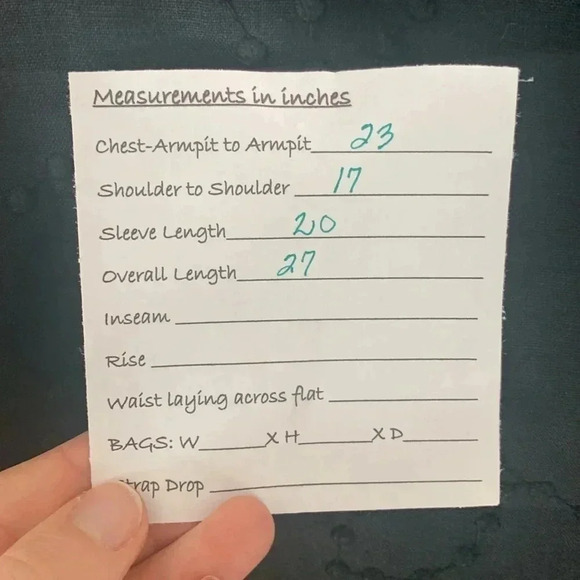 Measurements in inches
Chest-Armpit to Armpit 23
Shoulder to Shoulder 17
Sleeve Length 20
Overall Length 27
Inseam
Rise
Waist laying across flat
BAGS: W X H X D
trap Drop